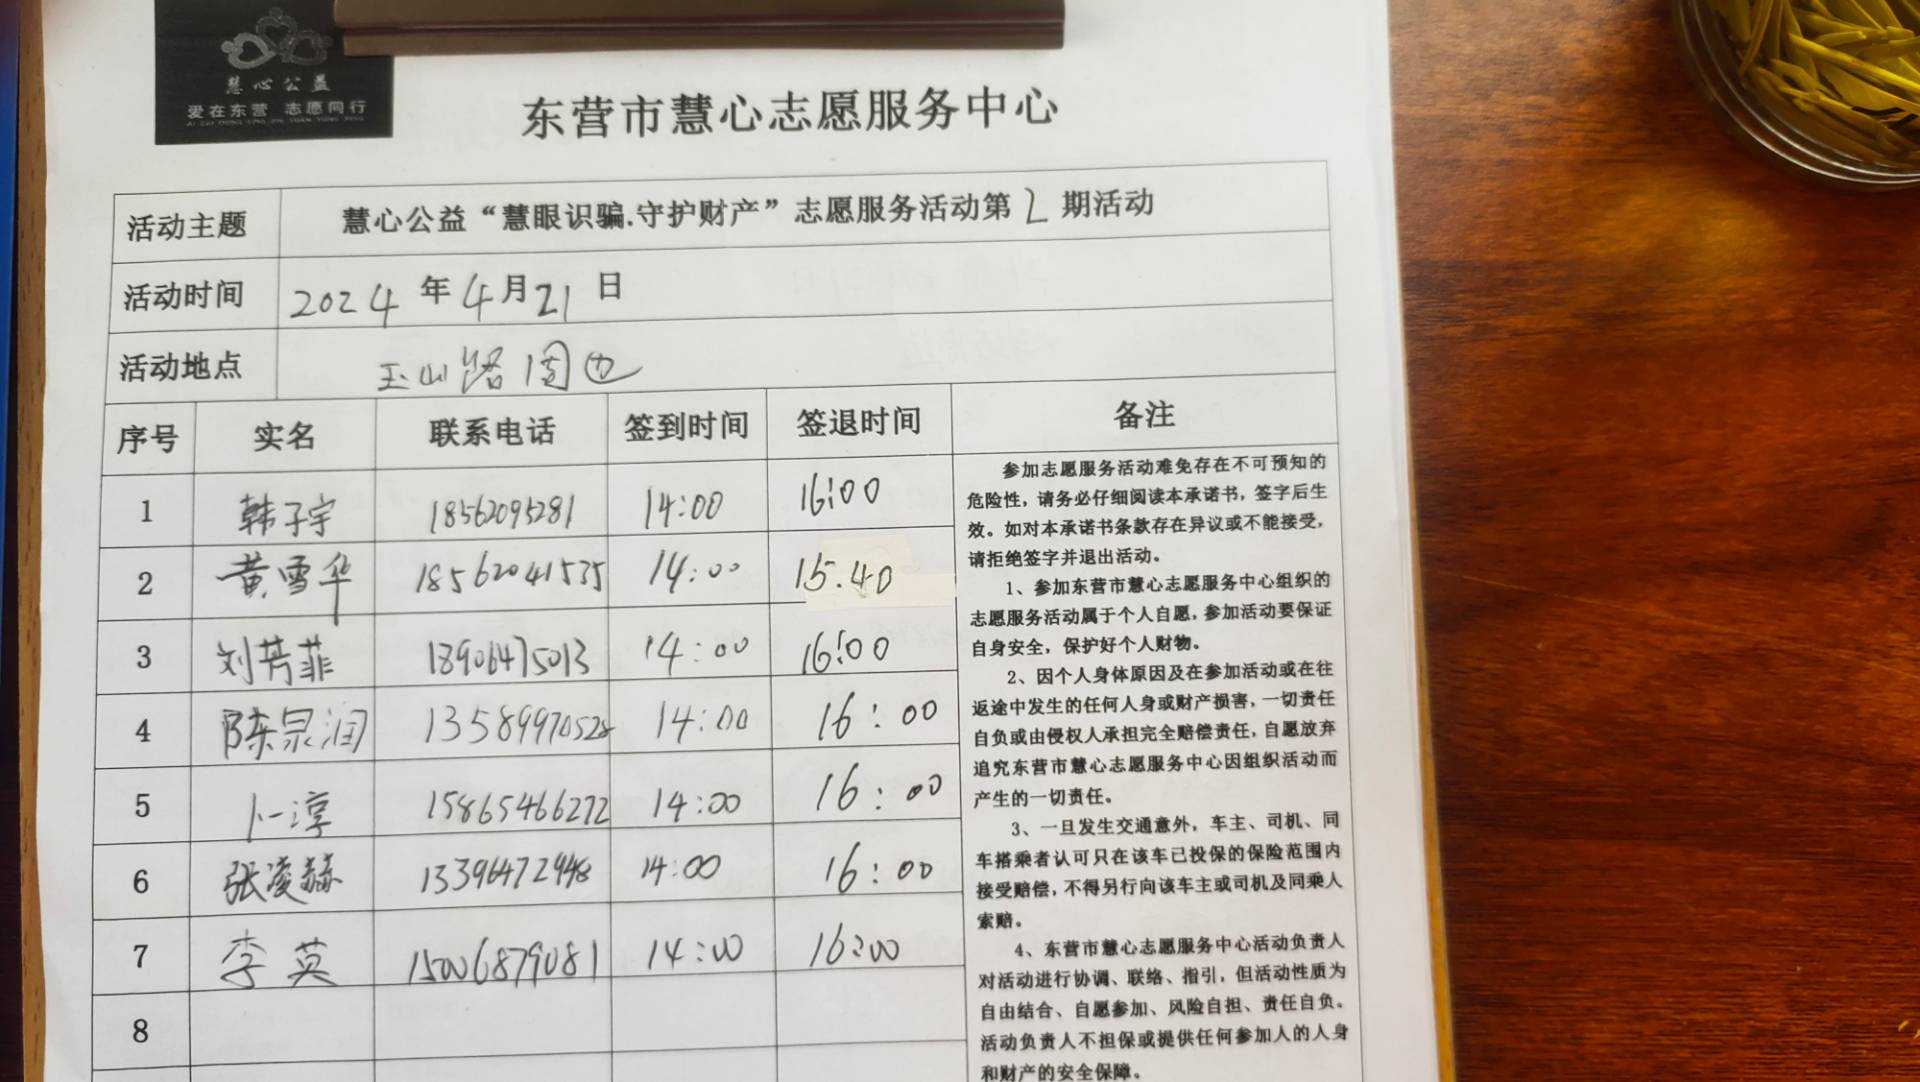 慧心公益
爱在东营 志愿同行
东营市慧心志愿服务中心
活动主题 慧心公益“慧眼识骗.守护财产”志愿服务活动第2期活动
活动时间 2024年4月21日
活动地点 玉山路周边
序号 实名 联系电话 签到时间 签退时间 备注
1 韩子宇 18562095281 14:00 16:00
2 黄雪华 18562041535 14:00 15.40
3 刘芳菲 18906475013 14:00 16:00
4 陈泉润 13589970528 14:00 16:00
5 卜一淳 15865466272 14:00 16:00
6 张凌赫 13396472948 14:00 16:00
7 李英 15006879081 14:00 16:00
8
参加志愿服务活动难免存在不可预知的
危险性，请务必仔细阅读本承诺书，签字后生
效。如对本承诺书条款存在异议或不能接受，
请拒绝签字并退出活动。
1、参加东营市慧心志愿服务中心组织的
志愿服务活动属于个人自愿，参加活动要保证
自身安全，保护好个人财物。
2、因个人身体原因及在参加活动或在往
返途中发生的任何人身或财产损害，一切责任
自负或由侵权人承担完全赔偿责任，自愿放弃
追究东营市慧心志愿服务中心因组织活动而
产生的一切责任。
3、一旦发生交通意外，车主、司机、同
车搭乘者认可只在该车已投保的保险范围内
接受赔偿，不得另行向该车主或司机及同乘人
索赔。
4、东营市慧心志愿服务中心活动负责人
对活动进行协调、联络、指引，但活动性质为
自由结合、自愿参加、风险自担、责任自负。
活动负责人不担保或提供任何参加人的人身
和财产的安全保障。